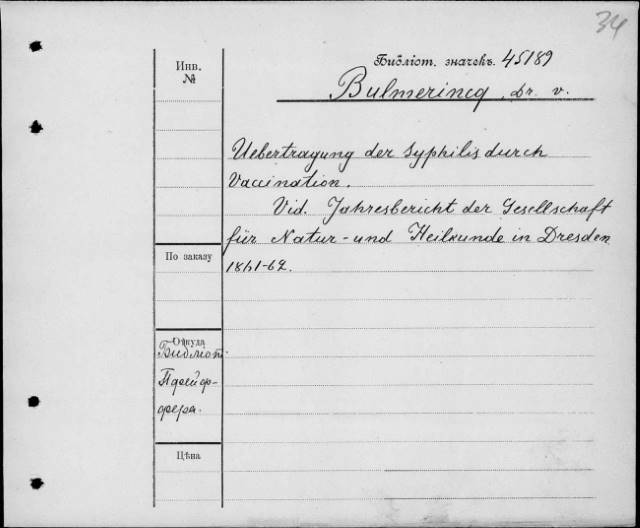 34
Инв.
№
Библіот. значекъ. 45189
Bulmerincq, Dr. v.
Uebertragung der Syphilis durch
Vaccination.
Vid. Jahresbericht der Gesellschaft
für Natur- und Heilkunde in Dresden
1861-62.
По заказу
Откуда
Библіот.
Пфейф-
фера.
Цѣна